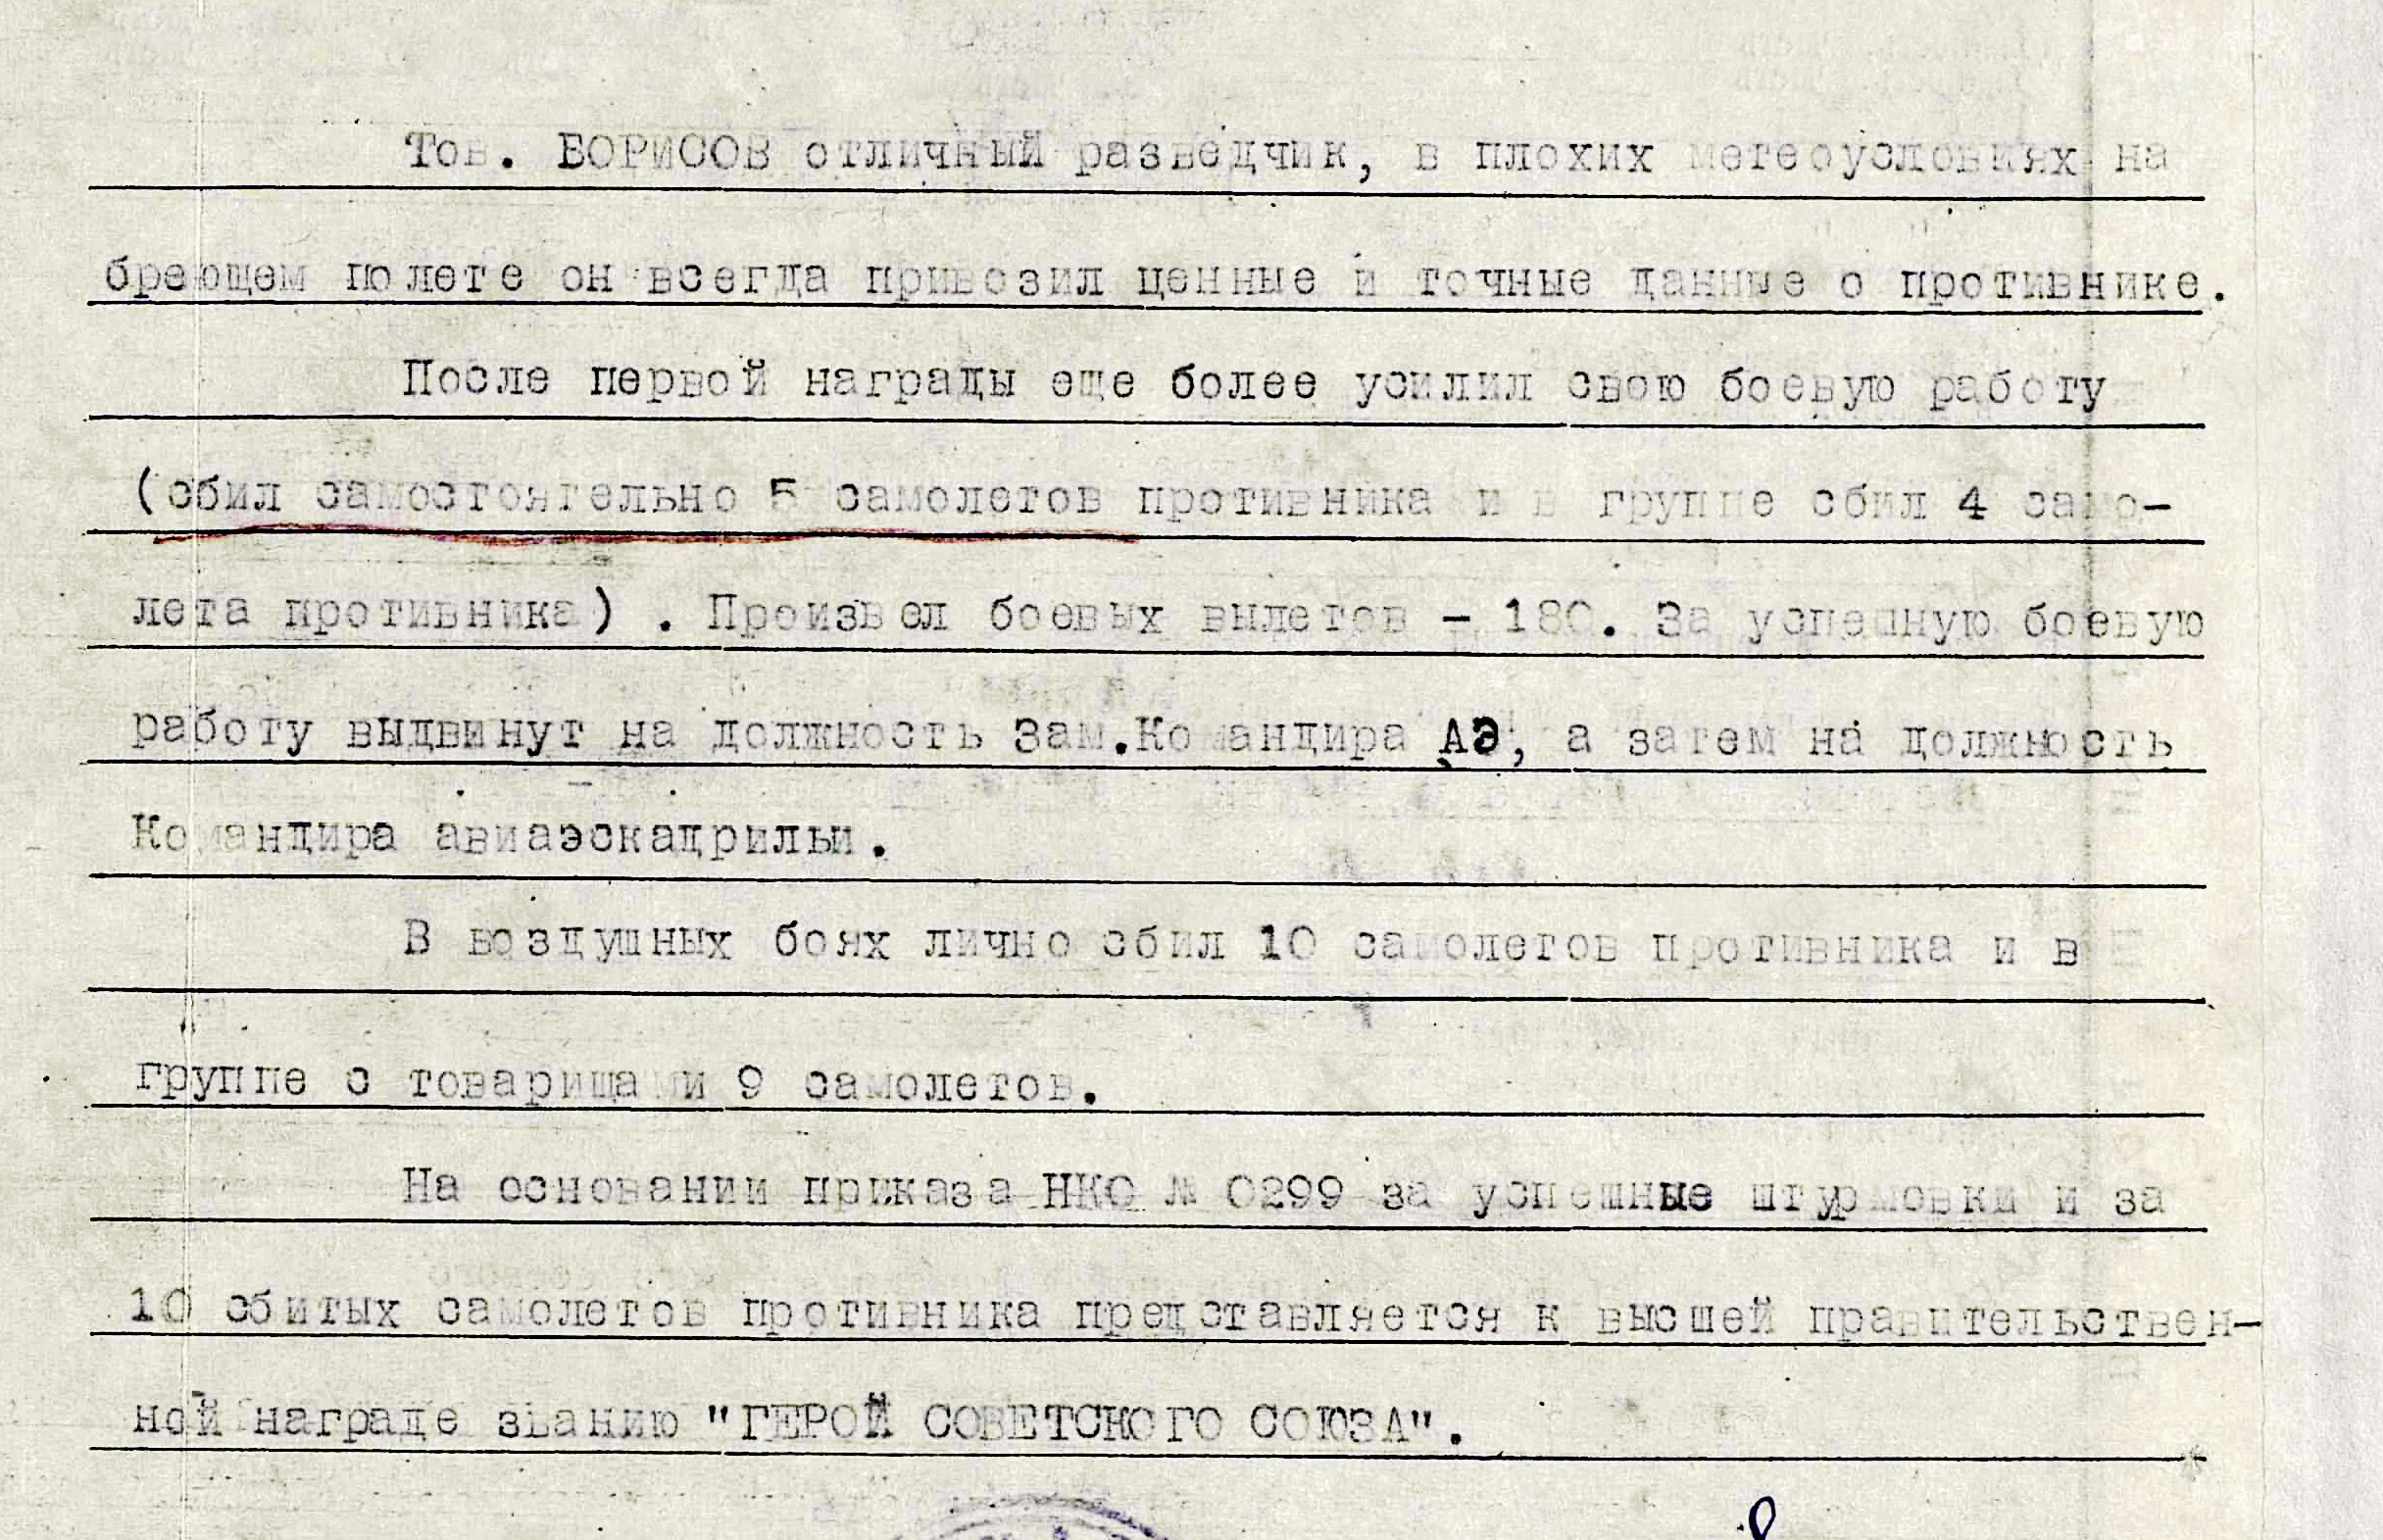 Тов. БОРИСОВ отличный разведчик, в плохих метеоусловиях на
бреющем полете он всегда привозил ценные и точные данные о противнике.
После первой награды еще более усилил свою боевую работу
(сбил самостоятельно 5 самолетов противника и в группе сбил 4 само-
лета противника) . Произвел боевых вылетов - 180. За успешную боевую
работу выдвинут на должность Зам.Командира АЭ, а затем на должность
Командира авиаэскадрильи.
В воздушных боях лично сбил 10 самолетов противника и в
группе с товарищами 9 самолетов.
На основании приказа НКО № 0299 за успешные штурмовки и за
10 сбитых самолетов противника представляется к высшей правительствен-
ной награде званию "ГЕРОЙ СОВЕТСКОГО СОЮЗА".